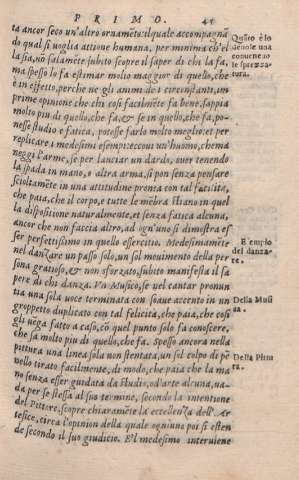 PRIMO. 41
ta ancor seco un'altro ornamẽto: ilquale accompagnã
do qual si uoglia attione humana, per minima ch'el
la sia, nõ salamẽte subito scopre il saper di chi la fa,
ma spesso lo fa estimar molto maggior di quello, che
è in effetto, perche ne gli animi de i circonstanti, im
prime opinione che chi cosi facilmẽte fa bene, sappia
molto piu di quello, che fa, & se in quello, che fa, po-
nesse studio e fatica, potesse farlo molto meglio: et per
replicare i medesimi esempi: eccoui un'huomo, che ma
neggi l'arme, se per lanciar un dardo, ouer tenendo
la spada in mano, o altra arma, si pon senza pensare
scioltamẽte in una attitudine pronta con tal facilità,
che paia, che il corpo, e tutte le mẽbra stiano in quel
la dispositione naturalmente, et senza fatica alcuna,
ancor che non faccia altro, ad ogn'uno si dimostra es
ser perfettissimo in quello essercitio. Medesimamẽte
nel danzare un passo solo, un sol mouimento della per
sona gratioso, & non sforzato, subito manifesta il sa
pere di chi danza. Vn Musico, se nel cantar pronun
tia una sola uoce terminata con soaue accento in un
groppetto duplicato con tal felicità, che paia, che cosi
gli uẽga fatto a caso, cõ quel punto solo fa conoscere,
che sa molto piu di quello, che fa. Spesso ancora nella
pittura una linea sola non stentata, un sol colpo di pẽ
nello tirato facilmente, di modo, che paia che la ma
no senza esser guidata da studio, od'arte alcuna, ua-
da per se stessa al suo termine, secondo la intentione
del Pittore, scopre chiaramẽte la eccellenza dell'Ar
tefice, circa l'opinion della quale ogniuno poi si esten
de secondo il suo giudicio. E'l medesimo interuiene
Quãto è lo
deuole una
conuenien
te sprezza-
tura.
Esempio
del danza-
re.
Della Musi
ca.
Della Pittu
ra.